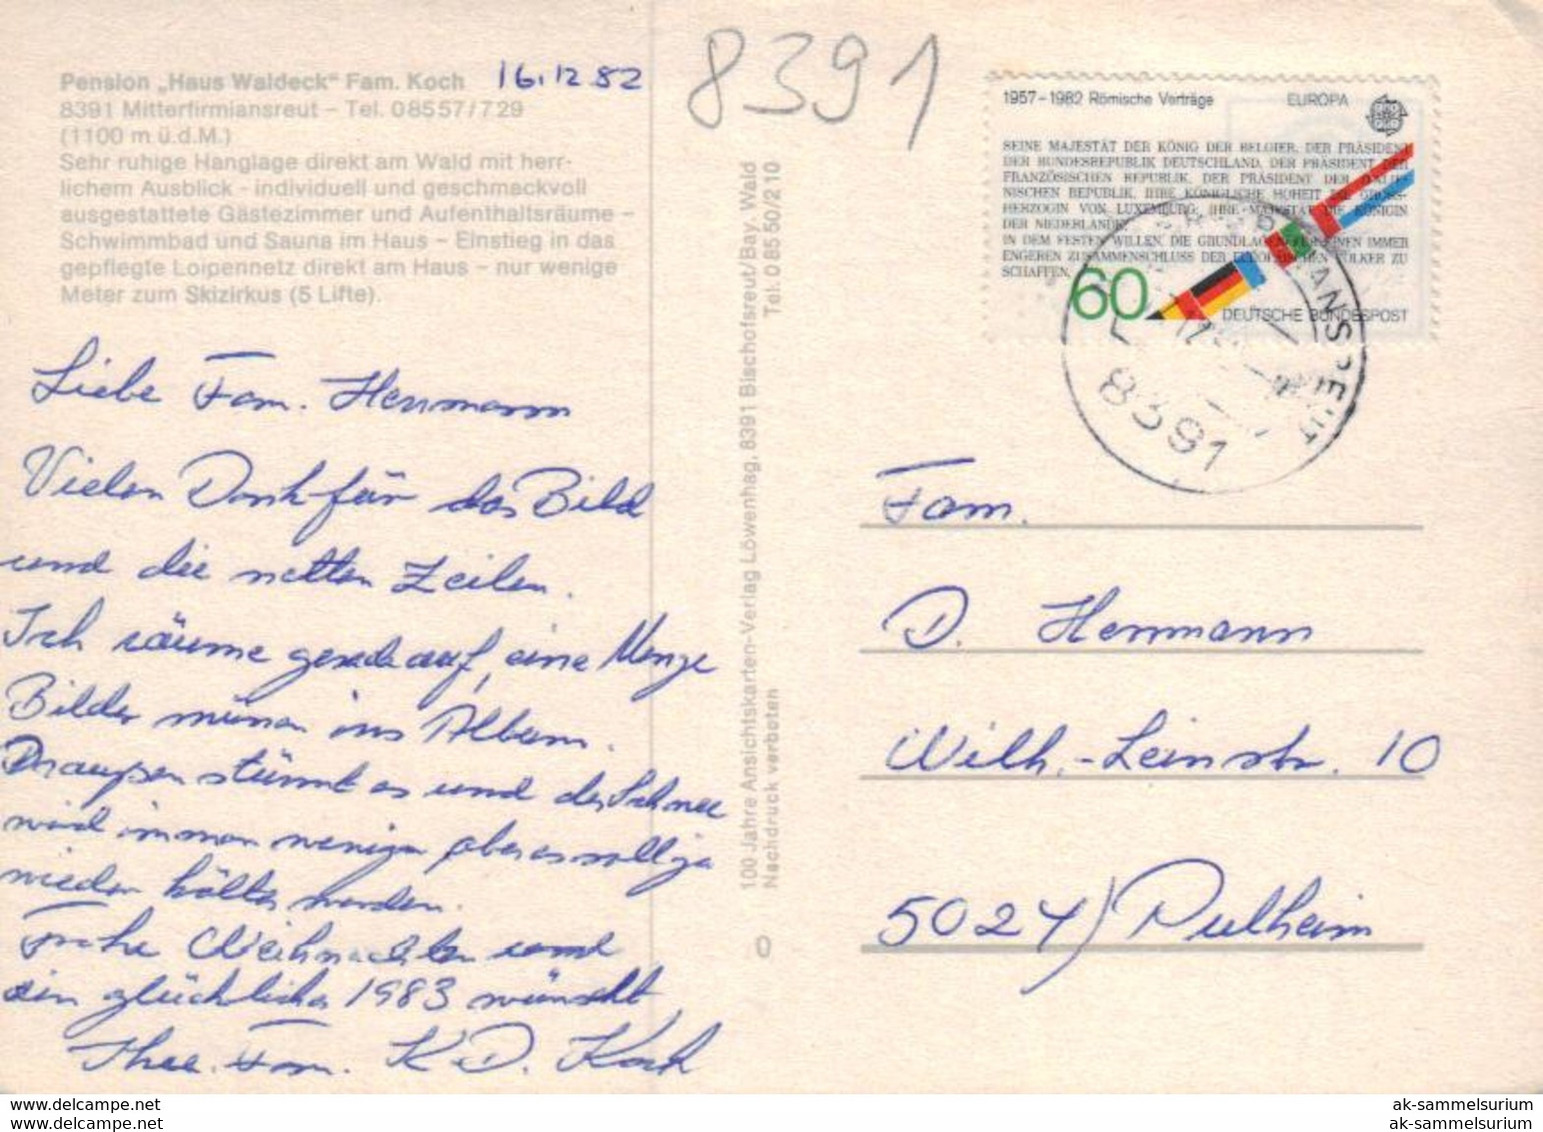 Pension „Haus Waldeck“ Fam. Koch
8391 Mitterfirmiansreut – Tel. 08557/729
(1100 m ü.d.M.)
Sehr ruhige Hanglage direkt am Wald mit herr-
lichem Ausblick - individuell und geschmackvoll
ausgestattete Gästezimmer und Aufenthaltsräume –
Schwimmbad und Sauna im Haus – Einstieg in das
gepflegte Loipennetz direkt am Haus – nur wenige
Meter zum Skizirkus (5 Lifte).
16.12.82
Liebe Fam. Herrmann
Vielen Dank für das Bild
und die netten Zeilen.
Ich räume gerade auf, eine Menge
Bilder müssen ins Album.
Draußen stürmt es und der Schnee
wird immer weniger, aber es soll ja
wieder kälter werden.
Frohe Weihnachten und
ein glückliches 1983 wünscht
Ihre Fam. K. D. Koch
100 Jahre Ansichtskarten-Verlag Löwenhag, 8391 Bischofsreut/Bay. Wald
Nachdruck verboten
Tel. 08550/210
0
8391
1957–1982 Römische Verträge
EUROPA
SEINE MAJESTÄT DER KÖNIG DER BELGIER, DER PRÄSIDENT
DER BUNDESREPUBLIK DEUTSCHLAND, DER PRÄSIDENT DER
FRANZÖSISCHEN REPUBLIK, DER PRÄSIDENT DER ITALIE-
NISCHEN REPUBLIK, IHRE KÖNIGLICHE HOHEIT DIE GROSS-
HERZOGIN VON LUXEMBURG, IHRE MAJESTÄT DIE KÖNIGIN
DER NIEDERLANDE,
IN DEM FESTEN WILLEN, DIE GRUNDLAGEN FÜR EINEN IMMER
ENGEREN ZUSAMMENSCHLUSS DER EUROPÄISCHEN VÖLKER ZU
SCHAFFEN,
60
DEUTSCHE BUNDESPOST
8391
Fam.
D. Herrmann
Wilh.-Leinstr. 10
5024) Pulheim
www.delcampe.net
www.delcampe.net
ak-sammelsurium
ak-sammelsurium